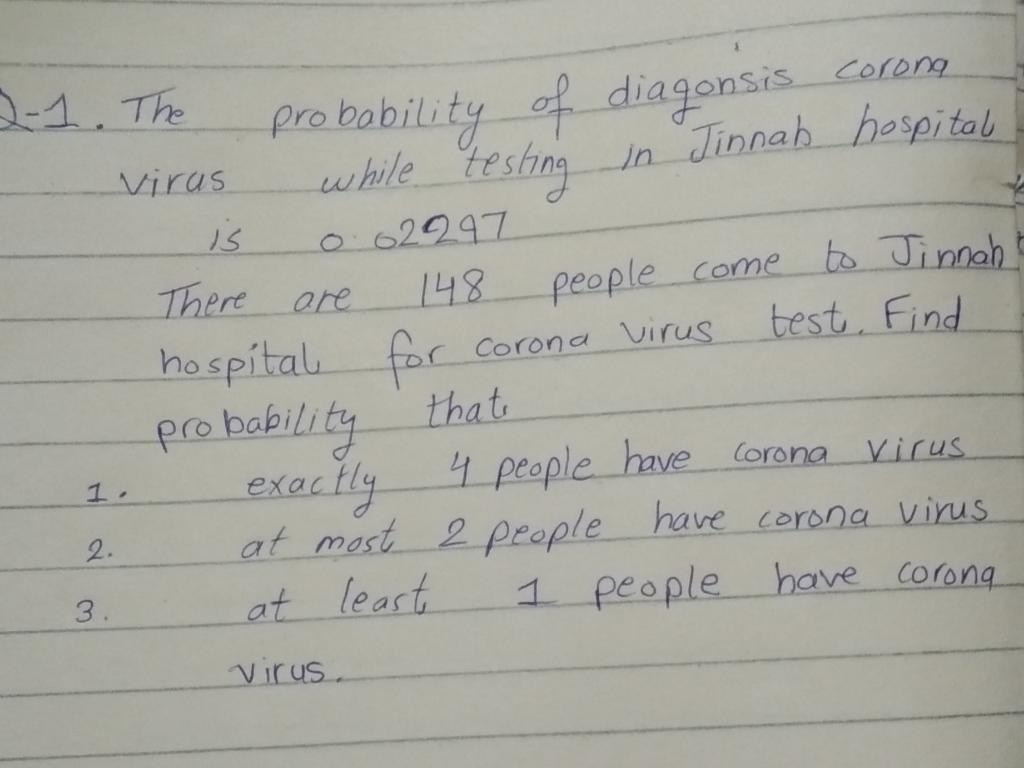 Q-1. The probability of diagonsis corona
virus while testing in Jinnah hospital
is 0.02297
There are 148 people come to Jinnah
hospital for corona virus test. Find
probability that
1. exactly 4 people have corona virus
2. at most 2 people have corona virus
3. at least 1 people have corona
virus.